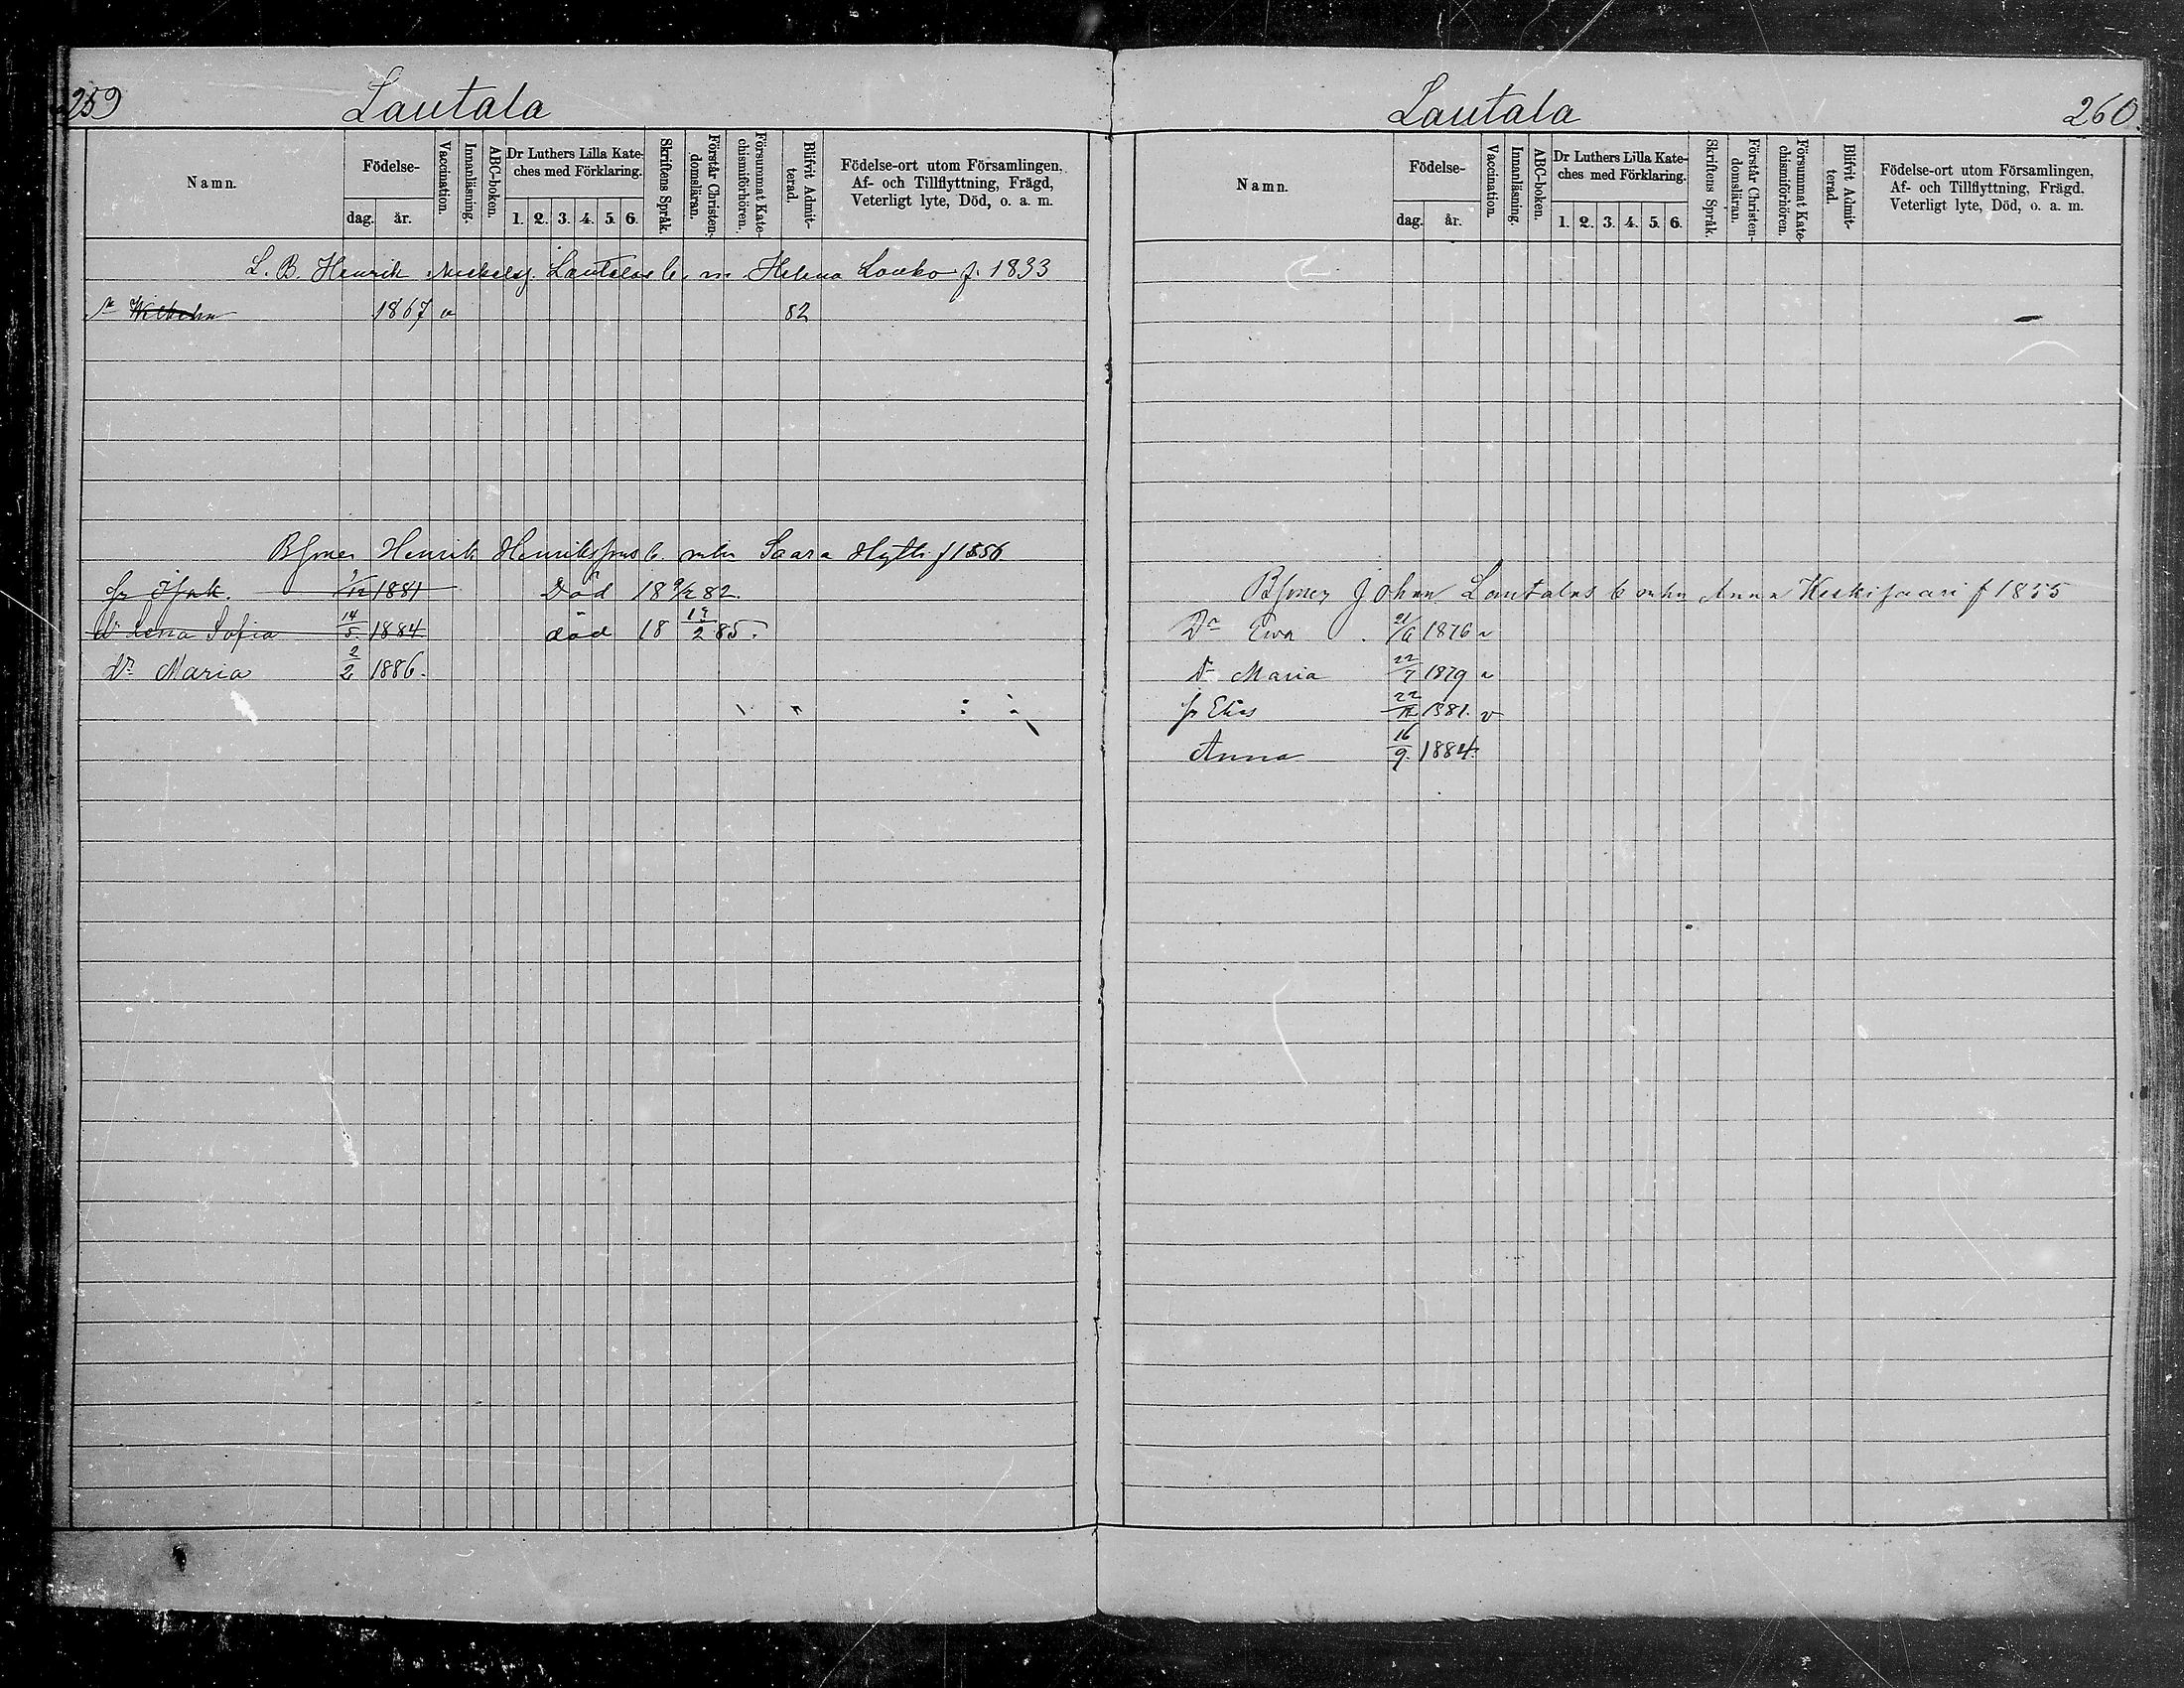 259
Lautala
Namn.
Födelse-
dag.
år.
Vaccination.
Innanläsning.
ABC-boken.
Dr Luthers Lilla Kate-
ches med Förklaring.
1. 2. 3. 4. 5. 6.
Skriftens Språk.
Förstår Christen-
domsläran.
Försummat Kate-
chismiförhören.
Blifvit Admit-
terad.
Födelse-ort utom Församlingen,
Af- och Tillflyttning, Frägd,
Veterligt lyte, Död, o. a. m.
L. B. Henrik Lautalas b. m Helena Louko f. 1833
Wilhelm 1867 v 82
Henrik Henrikssons b. mhu Saara Hytti f 1856
sr Isak. 1/12 1881 Död 18 9/2 82.
Dr Lena Sofia 14/5. 1884 död 18 19/2 85.
Dr Maria 2/2 1886.
Lautala
260.
Namn.
Födelse-
dag.
år.
Vaccination.
Innanläsning.
ABC-boken.
Dr Luthers Lilla Kate-
ches med Förklaring.
1. 2. 3. 4. 5. 6.
Skriftens Språk.
Förstår Christen-
domsläran.
Försummat Kate-
chismiförhören.
Blifvit Admit-
terad.
Födelse-ort utom Församlingen,
Af- och Tillflyttning, Frägd.
Veterligt lyte, Död, o. a. m.
Johan Lautalas b mhu Anna Keskisaari f 1855
Dr Ewa 21/6 1876 v
Dr Maria 22/7 1879 v
sr Elias 22/12 1881. v
Anna 16/9. 1884.